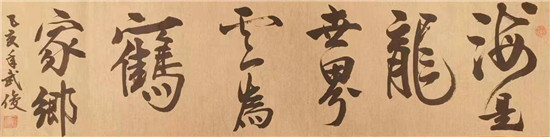 海是
龍
世界
雲為
鶴
家鄉
乙亥年武俊